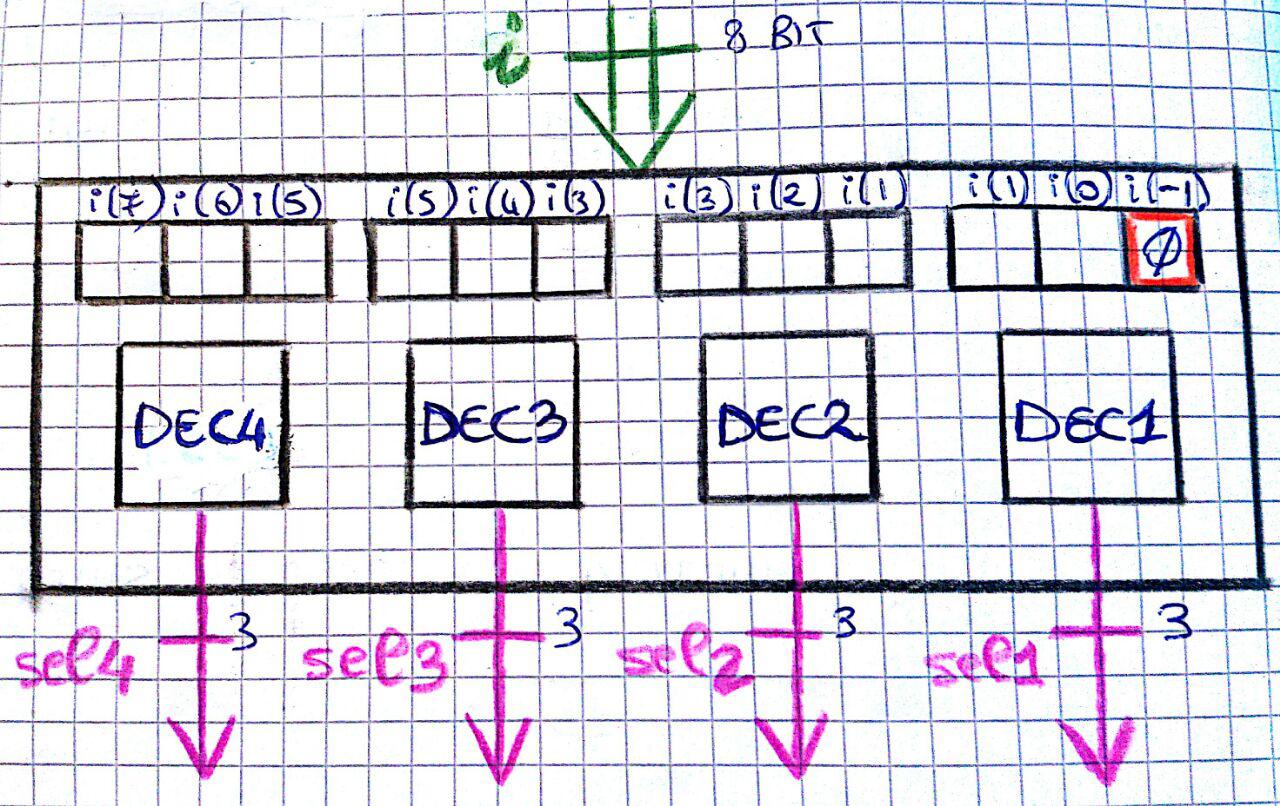 i 8 BIT
i(7) i(6) i(5) i(5) i(4) i(3) i(3) i(2) i(1) i(1) i(0) i(-1)
Ø
DEC4 DEC3 DEC2 DEC1
3 3 3 3
sel4 sel3 sel2 sel1